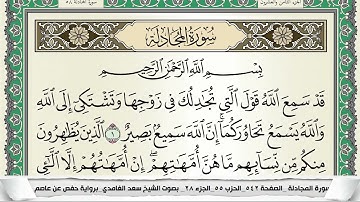 الجزء الثامن والعشرون
سورة المجادلة ٥٨
سُورَةُ المُجَادلَةِ
بِسْمِ ٱللَّهِ ٱلرَّحْمَٰنِ ٱلرَّحِيمِ
قَدْ سَمِعَ ٱللَّهُ قَوْلَ ٱلَّتِي تُجَٰدِلُكَ فِي زَوْجِهَا وَتَشْتَكِيٓ إِلَى ٱللَّهِ
وَٱللَّهُ يَسْمَعُ تَحَاوُرَكُمَآ إِنَّ ٱللَّهَ سَمِيعٌۢ بَصِيرٌ ١ ٱلَّذِينَ يُظَٰهِرُونَ
مِنكُم مِّن نِّسَآئِهِم مَّا هُنَّ أُمَّهَٰتِهِمْ إِنْ أُمَّهَٰتُهُمْ إِلَّا ٱلَّٰٓـِٔي
سورة المجادلة_ الصفحة ٥٤٢_ الحزب ٥٥_ الجزء ٢٨_ بصوت الشيخ سعد الغامدي_ برواية حفص عن عاصم